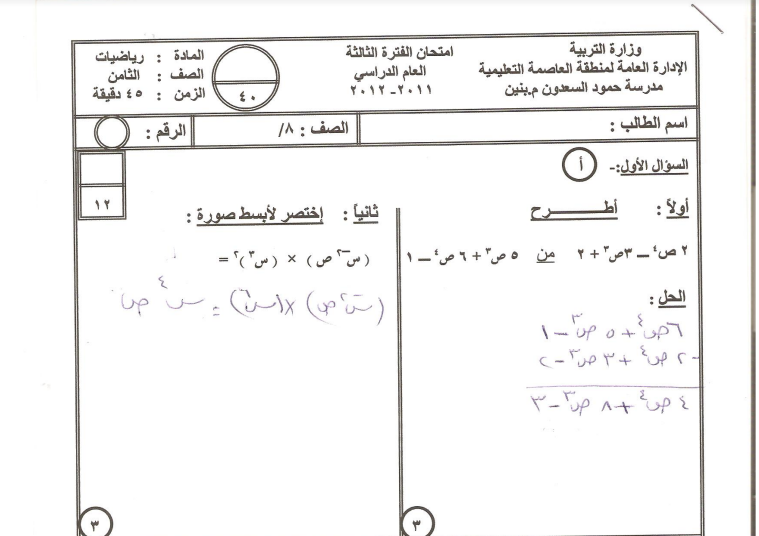 وزارة التربية
الإدارة العامة لمنطقة العاصمة التعليمية
مدرسة حمود السعدون م.بنين
امتحان الفترة الثالثة
العام الدراسي
٢٠١١-٢٠١٢
المادة : رياضيات
الصف : الثامن
الزمن : ٤٥ دقيقة
٤٠
اسم الطالب :
الصف : ٨/
الرقم :
السؤال الأول:-
أ
١٢
أولاً : أطــــــرح
٢ ص⁴ – ٣ص³ + ٢ من ٥ ص³ + ٦ ص⁴ – ١
الحل :
٦ص⁴ + ٥ ص³ – ١
-٢ ص⁴ + ٣ ص³ – ٢
٤ ص⁴ + ٨ ص³ – ٣
٣
ثانياً : إختصر لأبسط صورة :
( س⁻² ص ) × ( س³ )² =
(س⁻² ص) × (س⁶) = س⁴ ص
٣